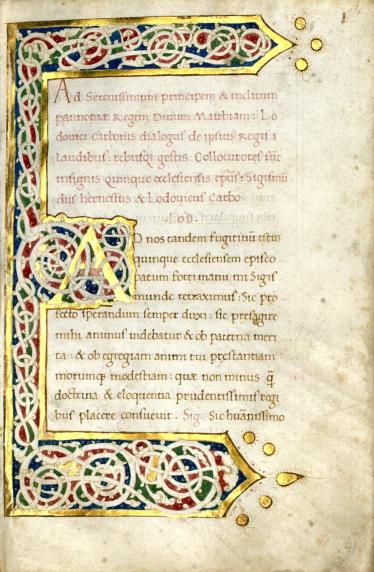 Ad Serenissimum principem & inclitum
pannoniæ Regem Diuum Matthiam: Lo
douici Carbonis dialogus de ipsius Regis
laudibus: rebusq; gestis. Collocutores sūt
insignis quinque ecclesiensis epūs: Sigismū
dus hernestus & Lodouicus Carbo.
Lod.
AD nos tandem fugitiuū istū
quinque ecclesiensem episco
patum forti manu mi Sigis
munde retraximus: Sic pro
fecto sperandum semper duxi: sic presagire
mihi animus uidebatur & ob paterna meri
ta: & ob egregiam animi tui prestantiam
morumq; modestiam: quæ non minus q̄
doctrina & eloquentia prudentissimis regi
bus placere consueuit. Sig: Sic huāissimo